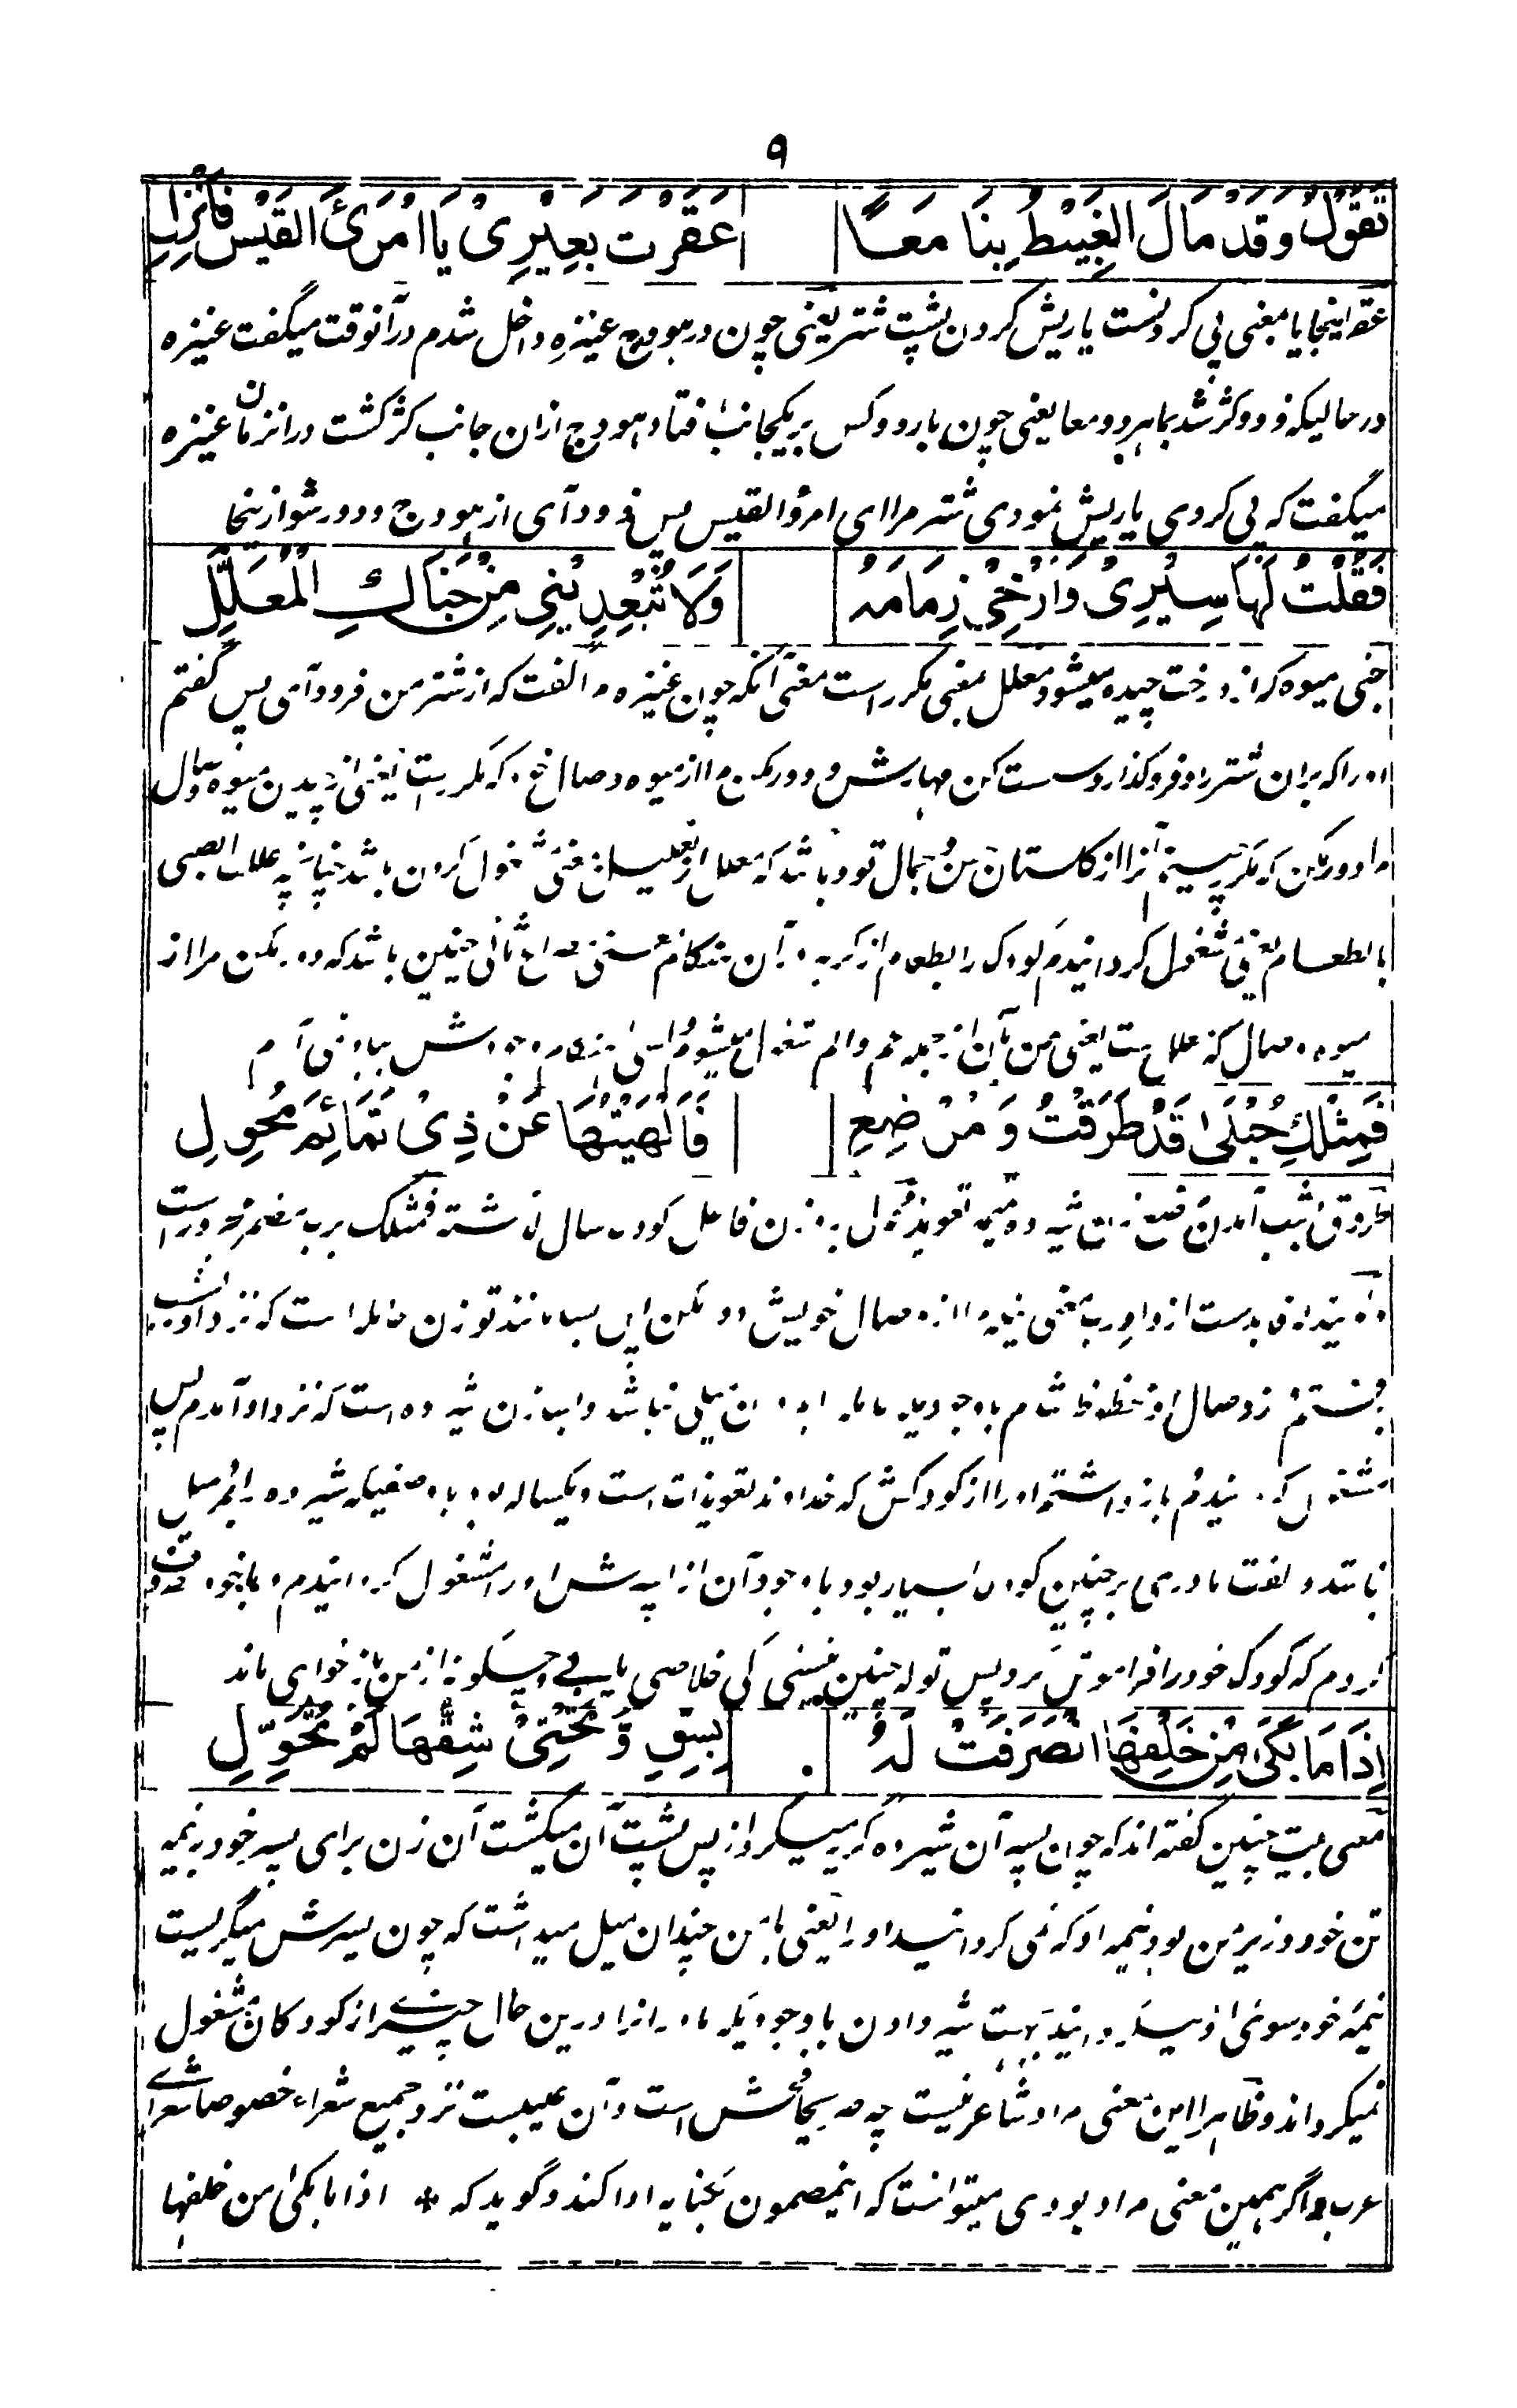 ۹
تَقُوْلُ وَقَدْ مَالَ الْغَبِيْطُ بِنَا مَعًا عَقَرْتَ بَعِيْرِىْ يَا امْرَئَ الْقَيْسِ فَانْزِلِ
عقر اینجا یا معنی پی کردنست یا ریش کردن پشت شتر یعنی چون در هودج عنیزه داخل شدم در آنوقت میگفت عنیزه
در حالیکه فرود کژ شد بما هردو معا یعنی چون بار دو کس بر یکجانب افتاد هودج ازان جانب کژ گشت درانزمان عنیزه
میگفت که پی کردی یا ریش نمودی شتر مرا ای امرؤ القیس پس فرود آی از هودج و دور شو ازینجا
فَقُلْتُ لَهَا سِيْرِىْ وَاَرْخِىْ زِمَامَهُ وَلَا تُبْعِدِيْنِىْ مِنْ جَنَاكِ الْمُعَلَّلِ
جنی میوه که از درخت چیده میشود و معلل بمعنی مکرر است معنی آنکه چون عنیزه مرا گفت که از شتر من فرود آی پس گفتم
او را که بران شتر را و فروگذار و سست کن مهارش و دور مکن مرا از میوه وصال خود که مکرر است یعنی از چیدن میوه وصال
مرا دور مکن که مکرر چینم آنرا از گلستان حسن و جمال تو و باشد که معلل از تعلیل بمعنی مشغول کردن باشد چنانچه عللت الصبی
بالطعام یعنی مشغول گردانیدم کودک را بطعام از گریه در آن هنگام معنی مصراع ثانی چنین باشد که دور مکن مرا از
میوه وصال که معلل است یعنی من بآن از جمله هم و الم مشغول میشوم
فَمِثْلِكِ حُبْلٰى قَدْ طَرَقْتُ وَمُرْضِعٍ فَاَلْهَيْتُهَا عَنْ ذِىْ تَمَائِمَ مُحْوِلِ
طروق بشب آمدن مرضع زن شیرده تمیمه تعویذ محول بر وزن فاعل کودک سال گذشته فمثلک برب مضمر مجرور است
خویش دور مکن ای بسا مانند تو زن حامله است که نزد او بشب
وصال او محظوظ شدم باوجودیکه حامله را بدان میلی نباشد و ای بسا زن شیرده است که نزد او آمدم پس
مشغول گردانیدم و باز داشتم او را از کودکش که خداوند تعویذات است و یکساله بود باوصفیکه شیرده را هم میل
نباشد و الفت مادری بر چنین کودک بسیار بود باوجود آن از پسرش او را مشغول گردانیدم و باخود
کردم که کودک خود را فراموش کرد پس تو که چنین نیستی کی خلاصی یابی و چگونه از من باز خواهی ماند
اِذَا مَا بَكٰى مِنْ خَلْفِهَا انْصَرَفَتْ لَهُ بِشِقٍّ وَّتَحْتِىْ شِقُّهَا لَمْ يُحَوَّلِ
معنی بیت چنین گفته اند که چون پسر آن شیرده گریه میکرد از پس پشت آن میگشت آن زن برای پسر خود بنیمه
تن خود و زیر من بود نیمه او که نمی گردانید او را یعنی با من چندان میل میداشت که چون پسرش میگریست
نیمه خود سوی او میگردانید بجهت شیر دادن باوجودیکه مادر آنرا درین حال چیزی از کودکان مشغول
نمیگرداند و ظاهرا این معنی مراد شاعر نیست چه مصریح فحش است و آن عیبست نزد جمیع شعراء خصوصا شعرای
عرب و اگر همین معنی مراد بودی میتوانست که اینمضمون بکنایه ادا کند و گوید که * اذا ما بکی من خلفها